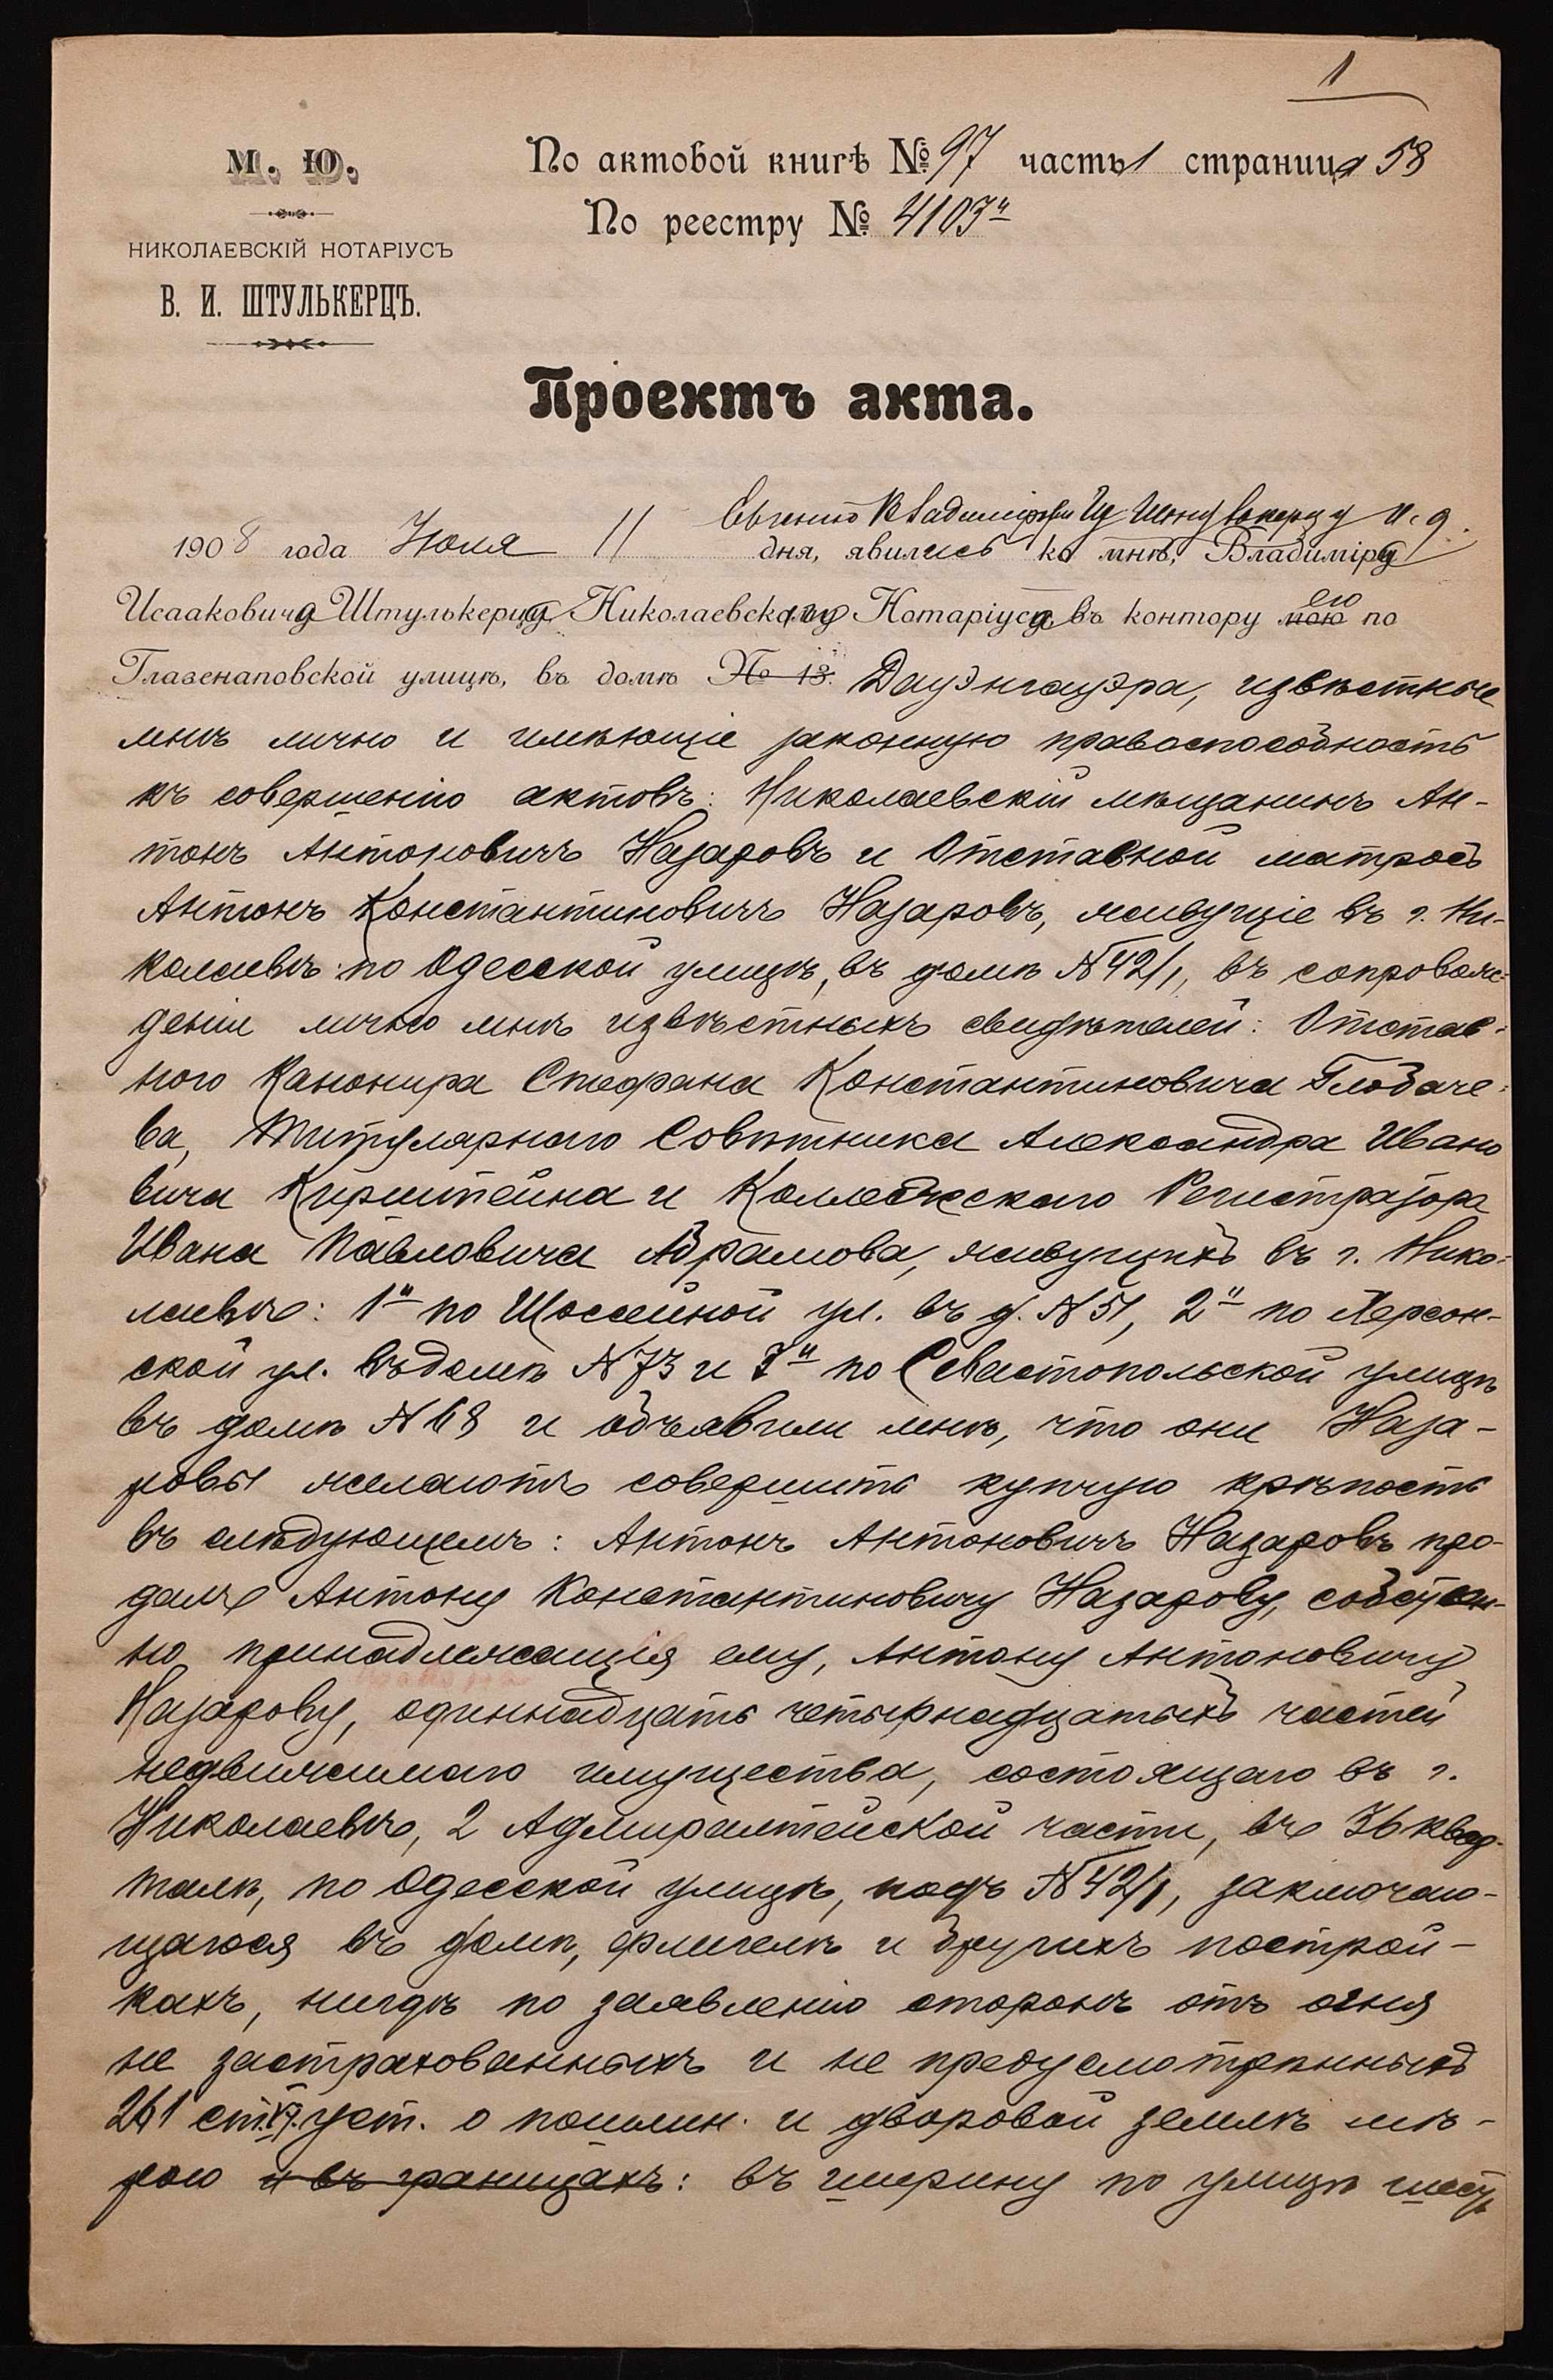 1
М. Ю.
НИКОЛАЕВСКІЙ НОТАРІУСЪ
В. И. ШТУЛЬКЕРЦЪ.
По актовой книгѣ № 97 часть 1 страница 58
По реестру № 4103
Проектъ акта.
Евгенію Владиміровичу Штулькерцу и. д.
1908 года Іюля 11 дня, явились ко мнѣ, Владиміру
Исааковичу Штулькерцу, Николаевскому Нотаріусу, въ контору мою его по
Глазенаповской улицѣ, въ домѣ № 13. Дауэнгауэра, извѣстные
мнѣ лично и имѣющіе законную правоспособность
къ совершенію актовъ: Николаевскій мѣщанинъ Ан-
тонъ Антоновичъ Назаровъ и Отставной матросъ
Антонъ Константиновичъ Назаровъ, живущіе въ г. Ни-
колаевѣ по Одесской улицѣ, въ домѣ № 42/1, въ сопровож-
деніи лично мнѣ извѣстныхъ свидѣтелей: Отстав-
ного Канонира Стефана Константиновича Глобаче-
ва, Титулярнаго Совѣтника Александра Ивано
вича Кирштейна и Коллежскаго Регистратора
Ивана Павловича Абрамова, живущихъ въ г. Нико-
лаевѣ: 1й по Шоссейной ул. въ д. № 51, 2й по Херсон-
ской ул. въ домѣ № 73 и 3й по Севастопольской улицѣ
въ домѣ № 68 и объявили мнѣ, что они Наза-
ровы желаютъ совершить купчую крѣпость
въ слѣдующемъ: Антонъ Антоновичъ Назаровъ про-
далъ Антону Константиновичу Назарову, собствен-
но принадлежащія ему, Антону Антоновичу
Назарову, одиннадцать четырнадцатыхъ частей
недвижимаго имущества, состоящаго въ г.
Николаевѣ, 2 Адмиралтейской части, въ 36 квар-
талѣ, по Одесской улицѣ, подъ № 42/1, заключаю-
щагося въ домѣ, флигелѣ и другихъ построй-
кахъ, нигдѣ по заявленію сторонъ отъ огня
не застрахованныхъ и не предусмотрѣнныхъ
261 ст. уст. о пошлин. и дворовой землѣ мѣ-
рою и въ границахъ: въ ширину по улицѣ шесть